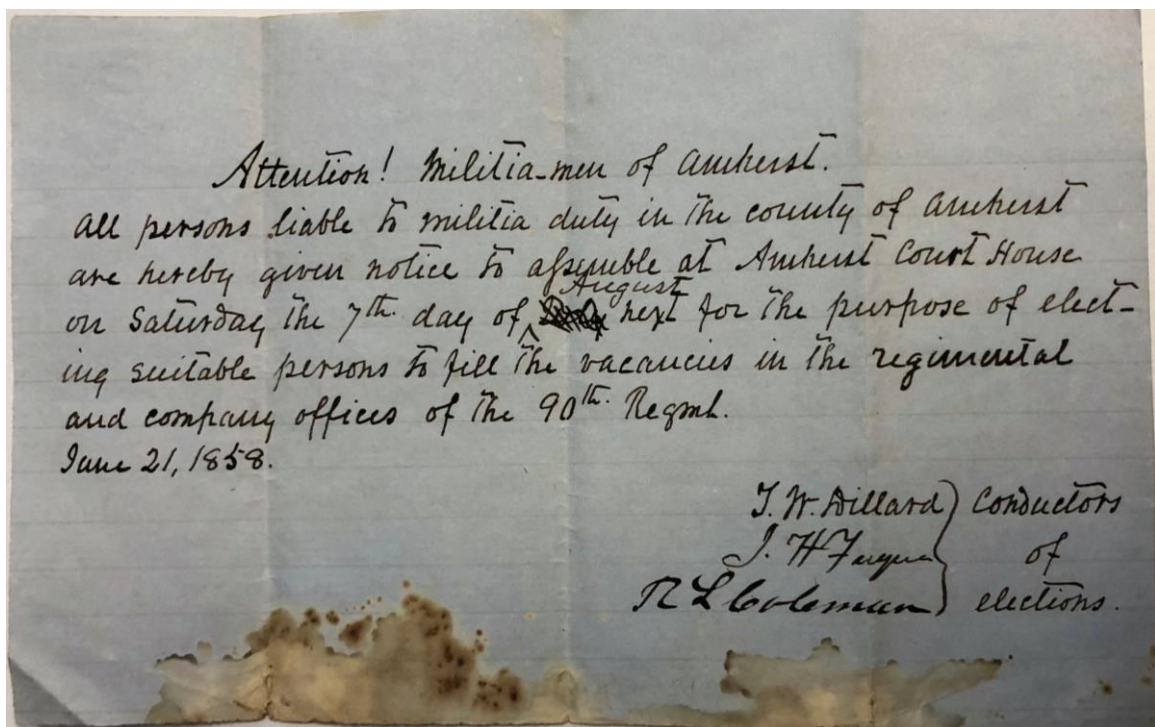 Attention! Militia-men of Amherst.
All persons liable to militia duty in the county of Amherst
are hereby given notice to assemble at Amherst Court House
on Saturday the 7th. day of August next for the purpose of elect-
ing suitable persons to fill the vacancies in the regimental
and company offices of the 90th. Regmt.
June 21, 1858.
T. W. Dillard } Conductors
J. H of
R L Coleman } elections.